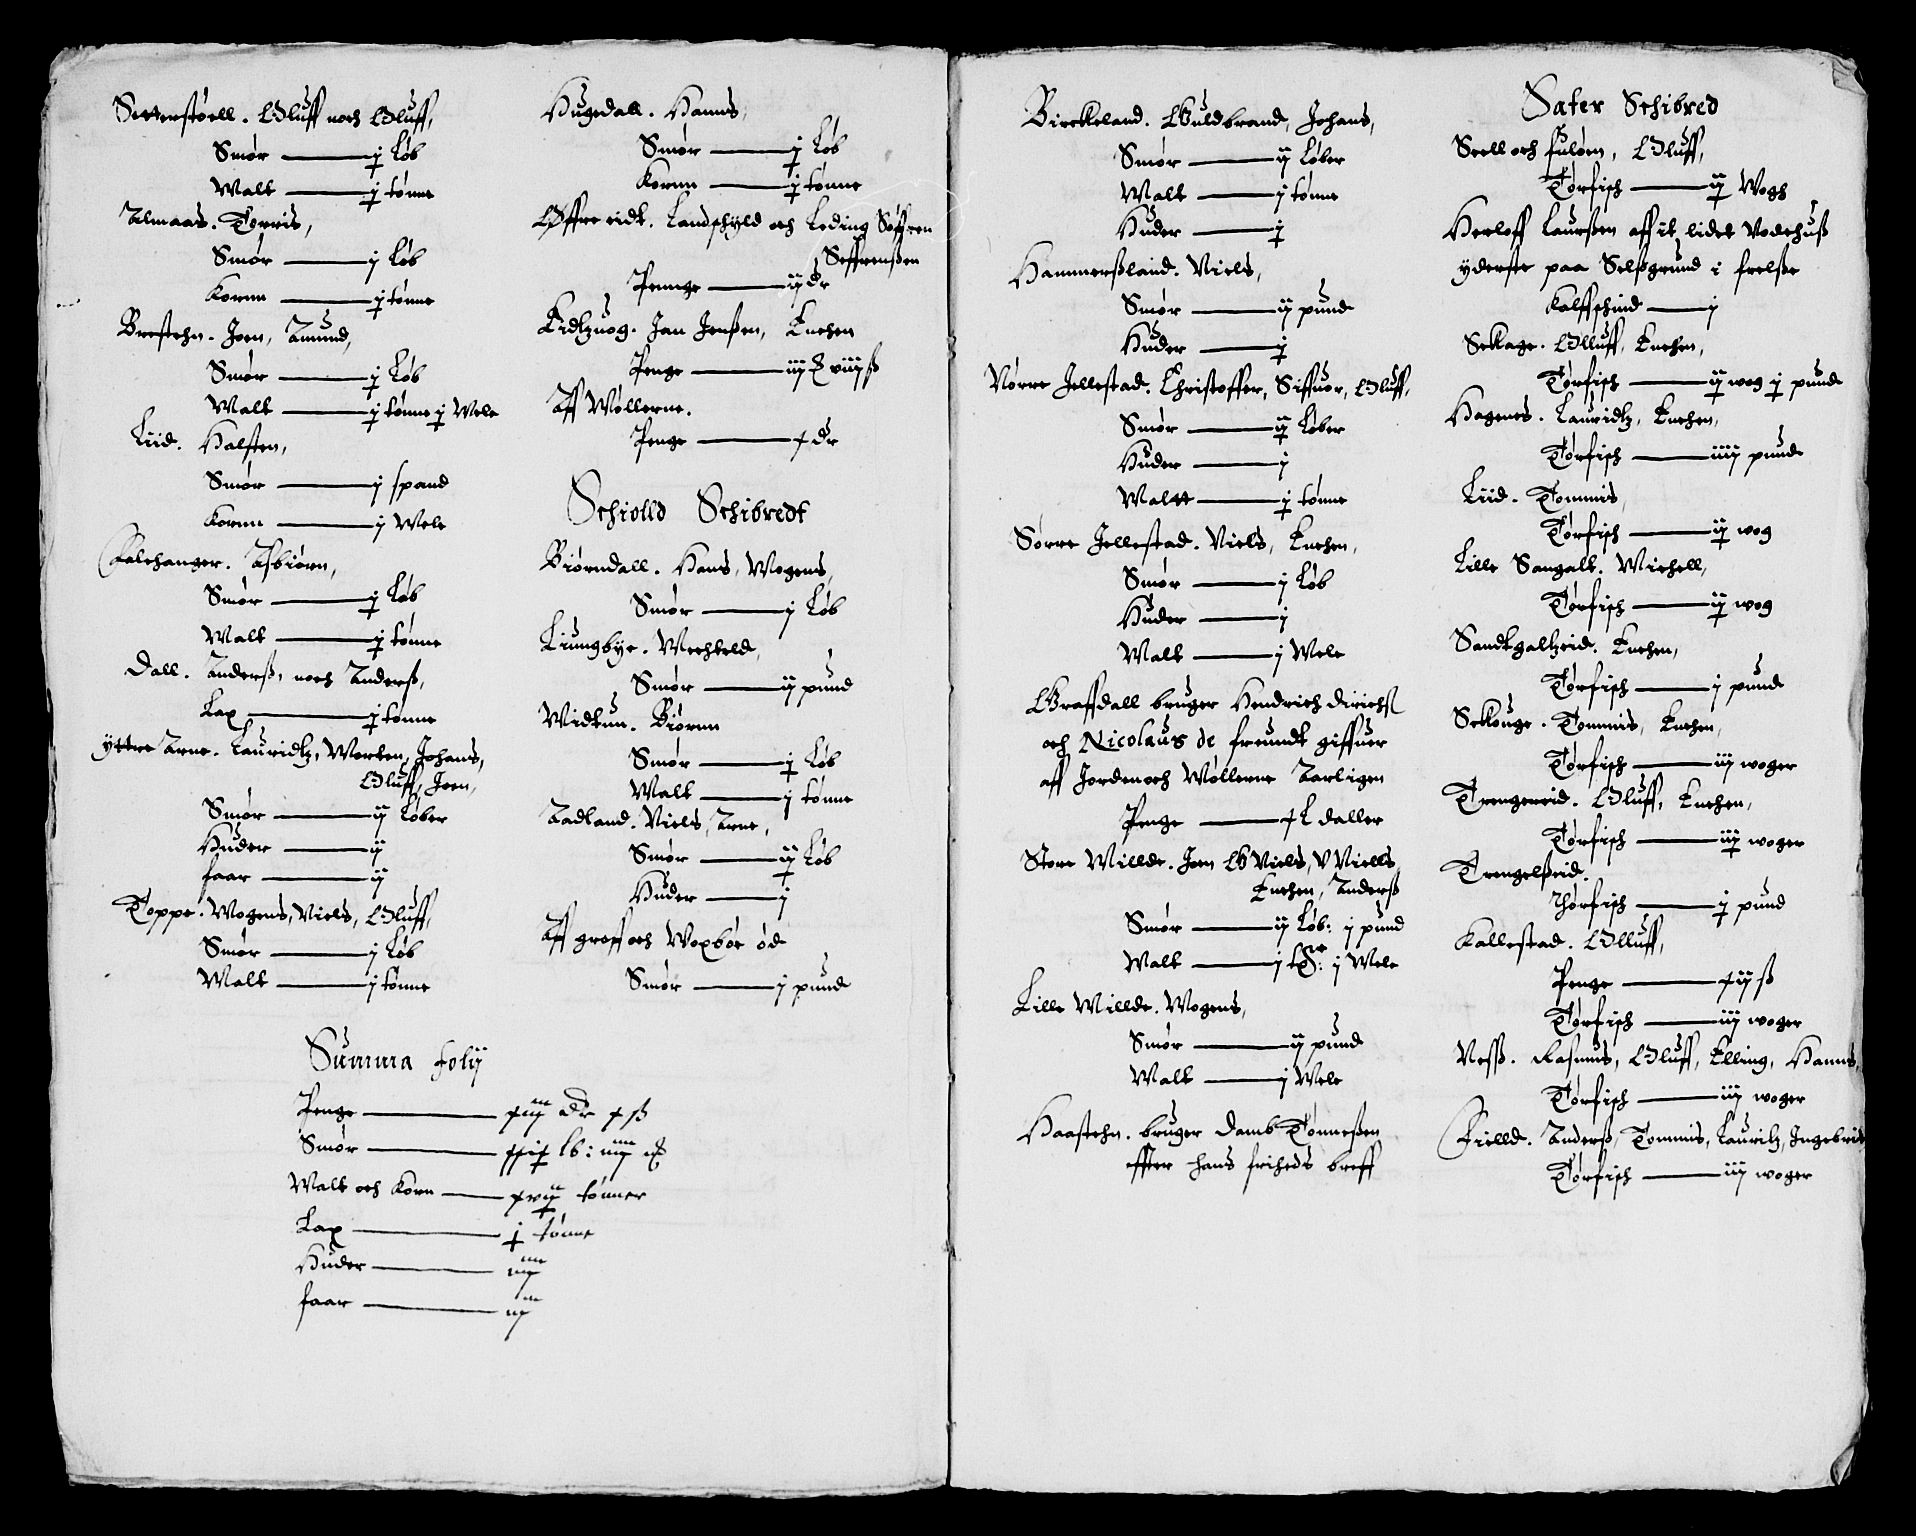 Setterstøell. Oluff noch Oluff,
Smør — j Løb
Malt — j tønne
Almaas. Torris,
Smør — j Løb
Kornn — j tønne
Brestehn. Joen, Amund,
Smør — j Løb
Malt — j tønne j Mele
Liid. Halsten,
Smør — j spand
Kornn — ij Mele
Falchanger. Asbiørn,
Smør — j Løb
Malt — j tønne
Dall. Anderß, noch Anderß,
Lax — j tønne
Yttre Arne. Lauridtz, Morten, Johans,
Oluff, Joen,
Smør — ij Løber
Huder — ij
faar — ij
Toppe. Mogens, Niels, Oluff,
Smør — j Løb
Malt — j tønne
Summa folij
Penge — xiij dr x ß
Smør —
Malt och Korn — xvij tønner
Lax — j tønne
Huder — iiij
faar — iij
Hugedall. Hanns,
Smør — j Løb
Kornn — j tønne
Øffre eidt. Landschyld och Leding Søffren
Seffrenßen
Pennge — ij dr
Kidlzuog. Jan Jenßen, Enchen
Penge — iij viij ß
Aff Møllerne.
Penge — x dr
Schiolld Schibredt
Biørndall. Hans, Mogens,
Smør — j Løb
Liungbye. Mechteld,
Smør — ij pund
Midtun. Biørnn
Smør — j Løb
Malt — j tønne
Aadland. Niels, Arne,
Smør — ij Løb
Huder — j
Aff graff och Woxbøe øde
Smør — j pund
Birckeland. Guldbrand, Johans,
Smør — ij Løber
Malt — j tønne
Huder — j
Hammerßland. Niels,
Smør — ij pund
Huder — j
Nørre Jellestad. Christoffer, Siffuor, Oluff,
Smør — ij Løber
Huder — j
Maltt — j tønne
Sørre Jellestad. Niels, Enchen,
Smør — j Løb
Huder — j
Malt — j Mele
Graffdall bruger Hendrich Dirichs
och Nicolaus de freundt giffuer
aff Jorden och Møllerne Aarligen
Penge — xl daller
Store Millde. Joen G Niels, V Niells
Enchen, Anderß
Smør — ij Løb: j pund
Malt — j tne: j Mele
Lille Millde. Mogens,
Smør — ij pund
Malt — j Mele
Haastehn. bruger Damb Tønneßen
effter hans friheds breff
Sater Schibred
Seell och fuløen, Oluff,
Tørfisch — ij Wogh
Herloff Laurßen aff it lidet Nødehuß
yderste paa Selßgrund i frelße
Kalffschind — j
Sekkage. Olluff, Enchen,
Tørfisch — ij wog j pund
Hagenes. Lauridtz, Enchen,
Tørfisch — iiij pund
Liid. Tommis,
Tørfisch — ij wog
Lille Sangalt. Michell,
Tørfisch — ij wog
Sandtgaltzeid. Enchen,
Tørfisch — j pund
Sekouge. Tommis, Enchen,
Tørfisch — iij woger
Trengereid. Oluff, Enchen,
Tørfisch — iij woger
Trengelßeid.
Thørfisch — j pund
Kallestad. Olluff,
Penge — xij ß
Tørfisch — iij woger
Neßß. Rasmus, Oluff, Elling, Hanns,
Tørfisch — iij woger
Fielld. Anderß, Tommis, Lauritz, Ingebrit
Tørfisch — iij woger